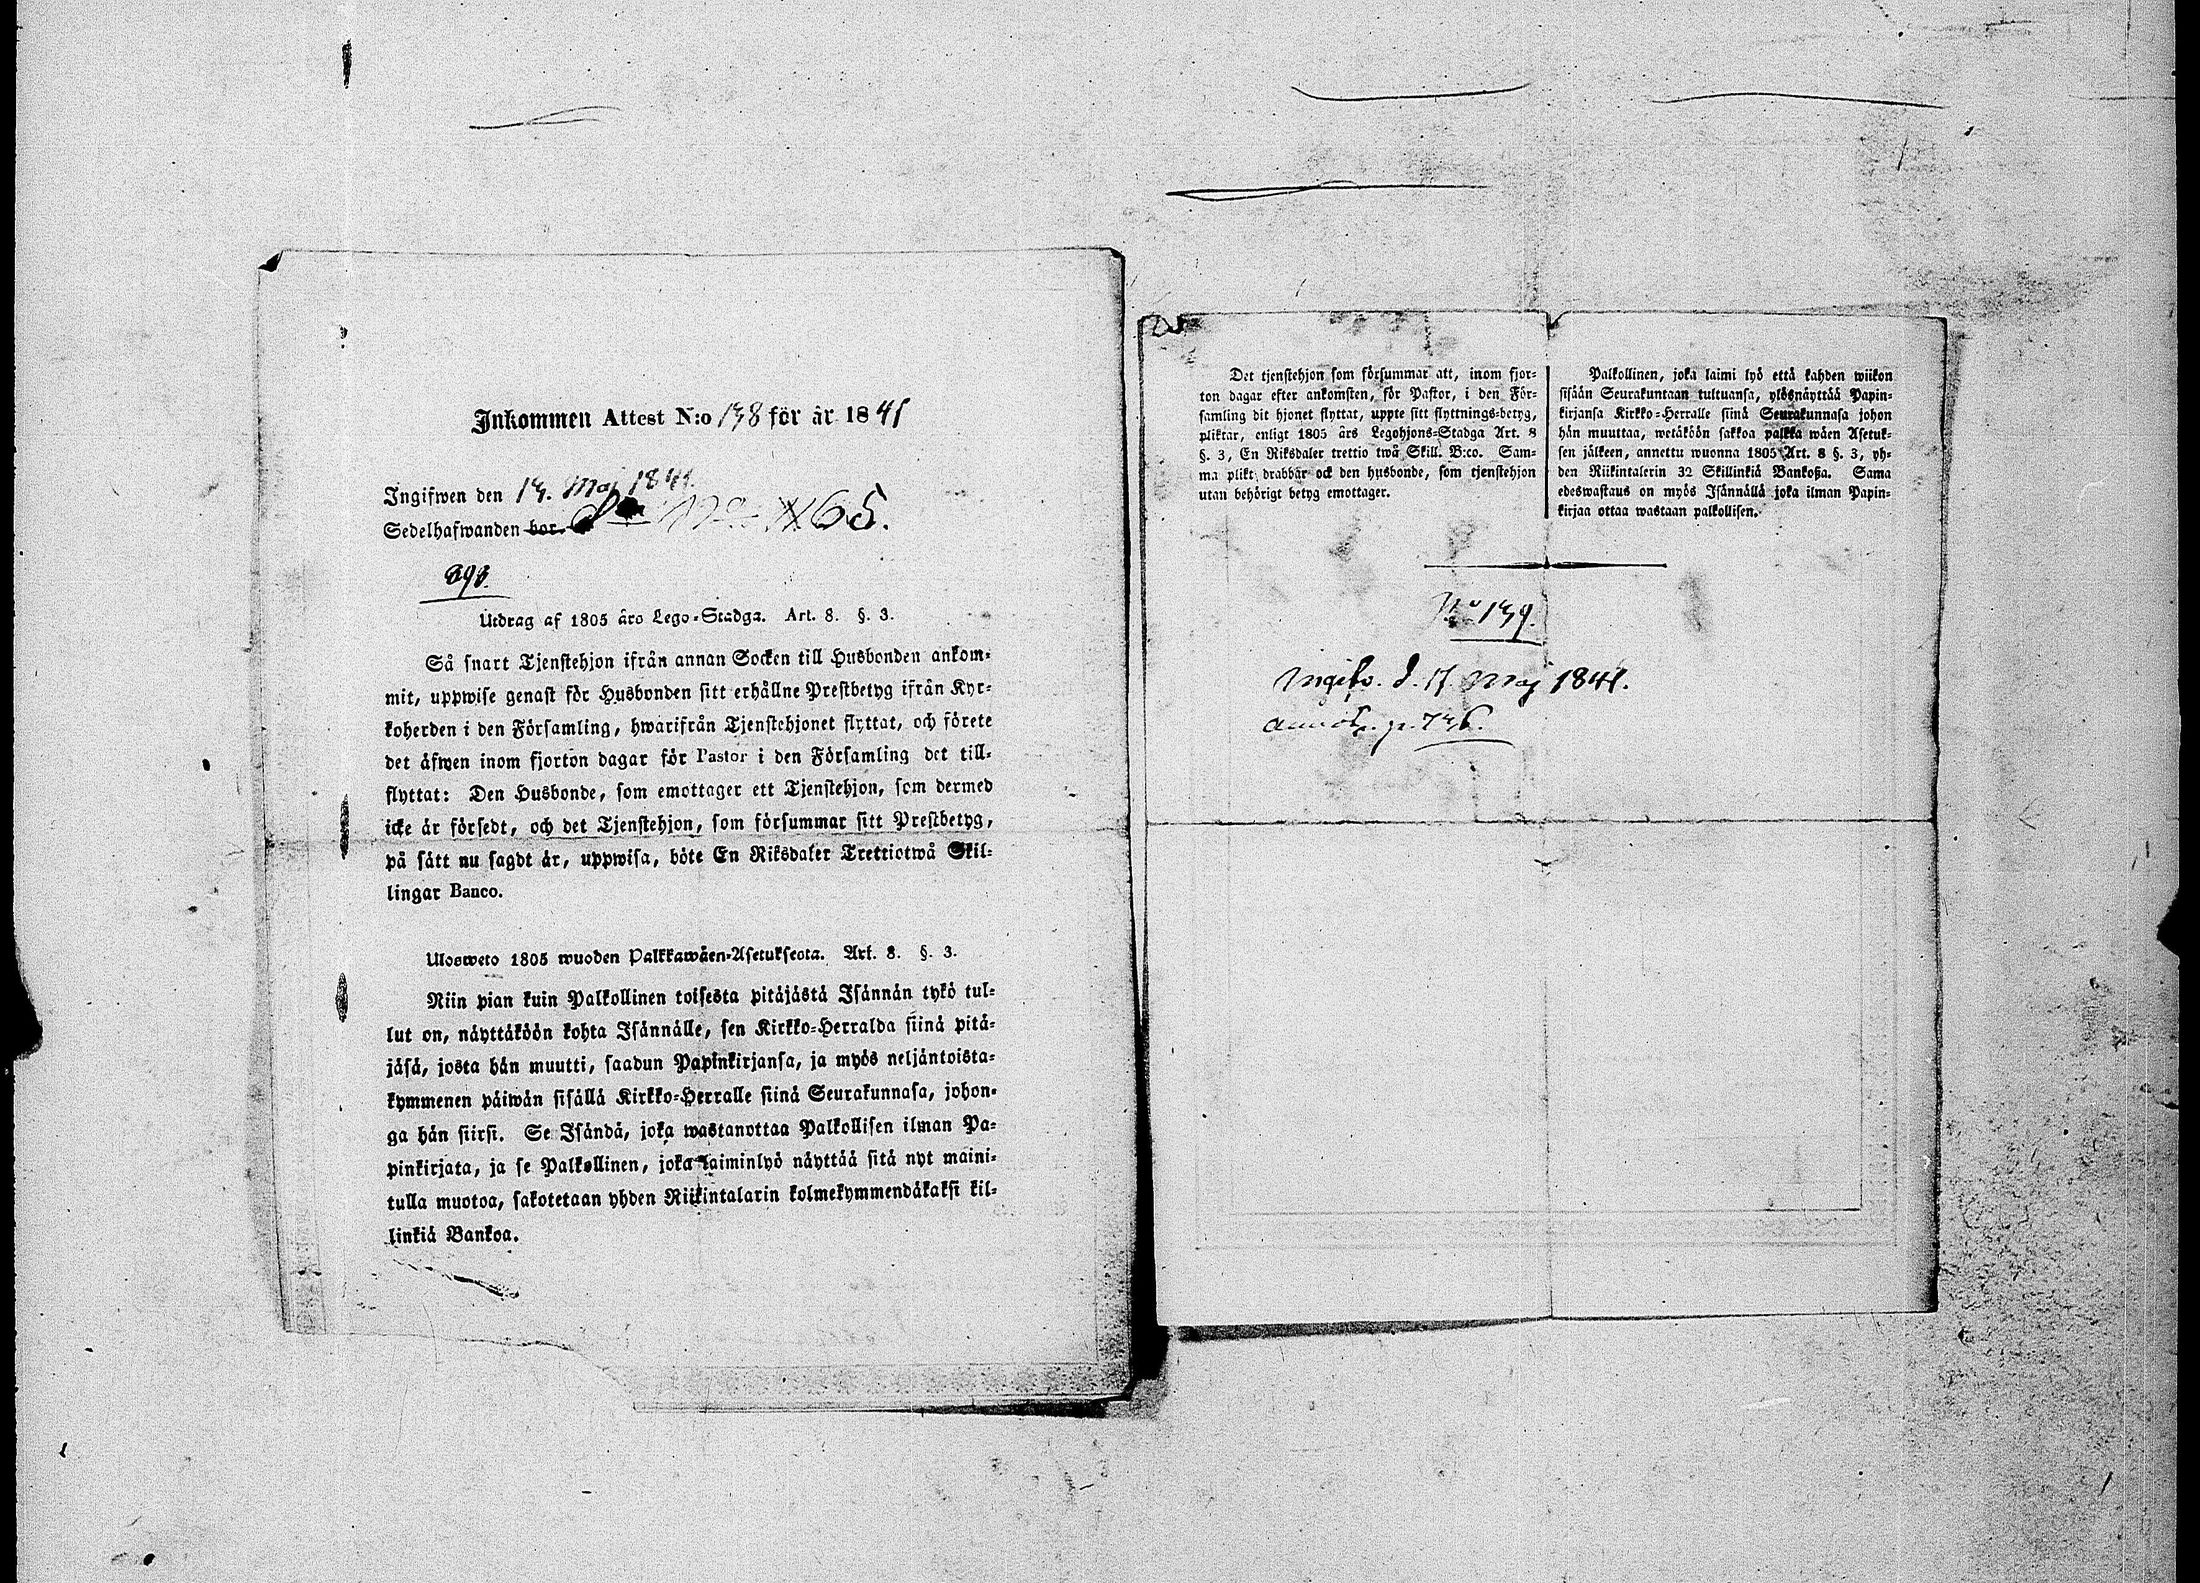 Inkommen Attest N:o 138 för år 1841
Ingifwen den 13. Maj 1841.
Sedelhafwanden bor 65.
393
Utdrag af 1805 års Lego-Stadga. Art. 8. §. 3.
Så snart Tjenstehjon ifrån annan Socken till Husbonden ankom-
mit, uppwise genast för Husbonden sitt erhållne Prestbetyg ifrån Kyr-
koherden i den Församling, hwarifrån Tjenstehjonet flyttat, och förete
det äfwen inom fjorton dagar för Pastor i den Församling det till-
flyttat: Den Husbonde, som emottager ett Tjenstehjon, som dermed
icke är försedt, och det Tjenstehjon, som försummar sitt Prestbetyg,
på sätt nu sagdt är, uppwisa, böte En Riksdaler Trettiotwå Skil-
lingar Banco.
Ulosweto 1805 wuoden Palkkawäen-Asetuksesta. Art. 8. §. 3.
Niin pian kuin Palkollinen toisesta pitäjästä Isännän tykö tul-
lut on, näyttäköön kohta Isännälle, sen Kirkko-Herralda siinä pitä-
jäsä, josta hän muutti, saadun Papinkirjansa, ja myös neljäntoista-
kymmenen päiwän sisällä Kirkko-Herralle siinä Seurakunnasa, johon-
ga hän siirsi. Se Isändä, joka wastanottaa Palkollisen ilman Pa-
pinkirjata, ja se Palkollinen, joka laiminlyö näyttää sitä nyt maini-
tulla muotoa, sakotetaan yhden Riikintalarin kolmekymmendäkaksi kil-
linkiä Bankoa.
Det tjenstehjon som försummar att, inom fjor-
ton dagar efter ankomsten, för Pastor, i den För-
samling dit hjonet flyttat, uppte sitt flyttnings-betyg,
pliktar, enligt 1805 års Legohjons-Stadga Art. 8
§. 3, En Riksdaler trettio twå Skill. B:co. Sam-
ma plikt drabbar ock den husbonde, som tjenstehjon
utan behörigt betyg emottager.
Palkollinen, joka laimi lyö että kahden wiikon
sisään Seurakuntaan tultuansa, ylösnäyttää Papin-
kirjansa Kirkko-Herralle siinä Seurakunnasa johon
hän muuttaa, wetäköön sakkoa palkka wäen Asetuk-
sen jälkeen, annettu wuonna 1805 Art. 8 §. 3, yh-
den Riikintalerin 32 Skillinkiä Bankoßa. Sama
edeswastaus on myös Isännällä joka ilman Papin-
kirjaa ottaa wastaan palkollisen.
No 139.
Ingifv. d. 17. Maj 1841.